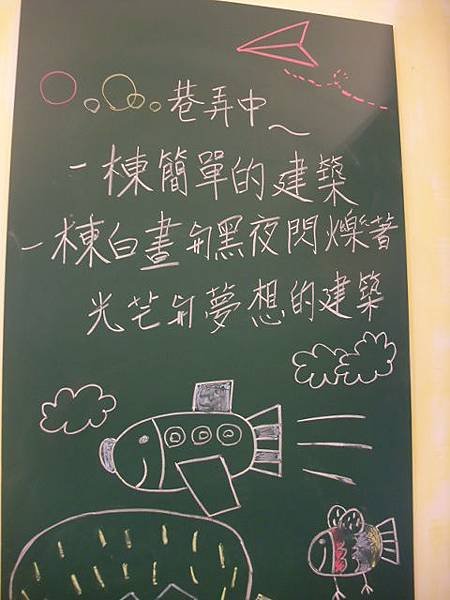 巷弄中~
一棟簡單的建築
一棟白晝與黑夜閃爍著
光芒與夢想的建築